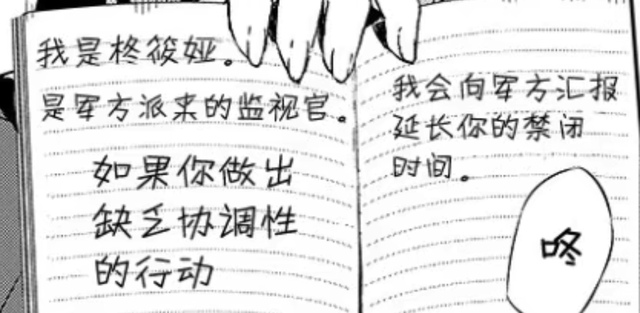 我是柊筱娅。
是军方派来的监视官。
如果你做出
缺乏协调性
的行动
我会向军方汇报
延长你的禁闭
时间。
咚